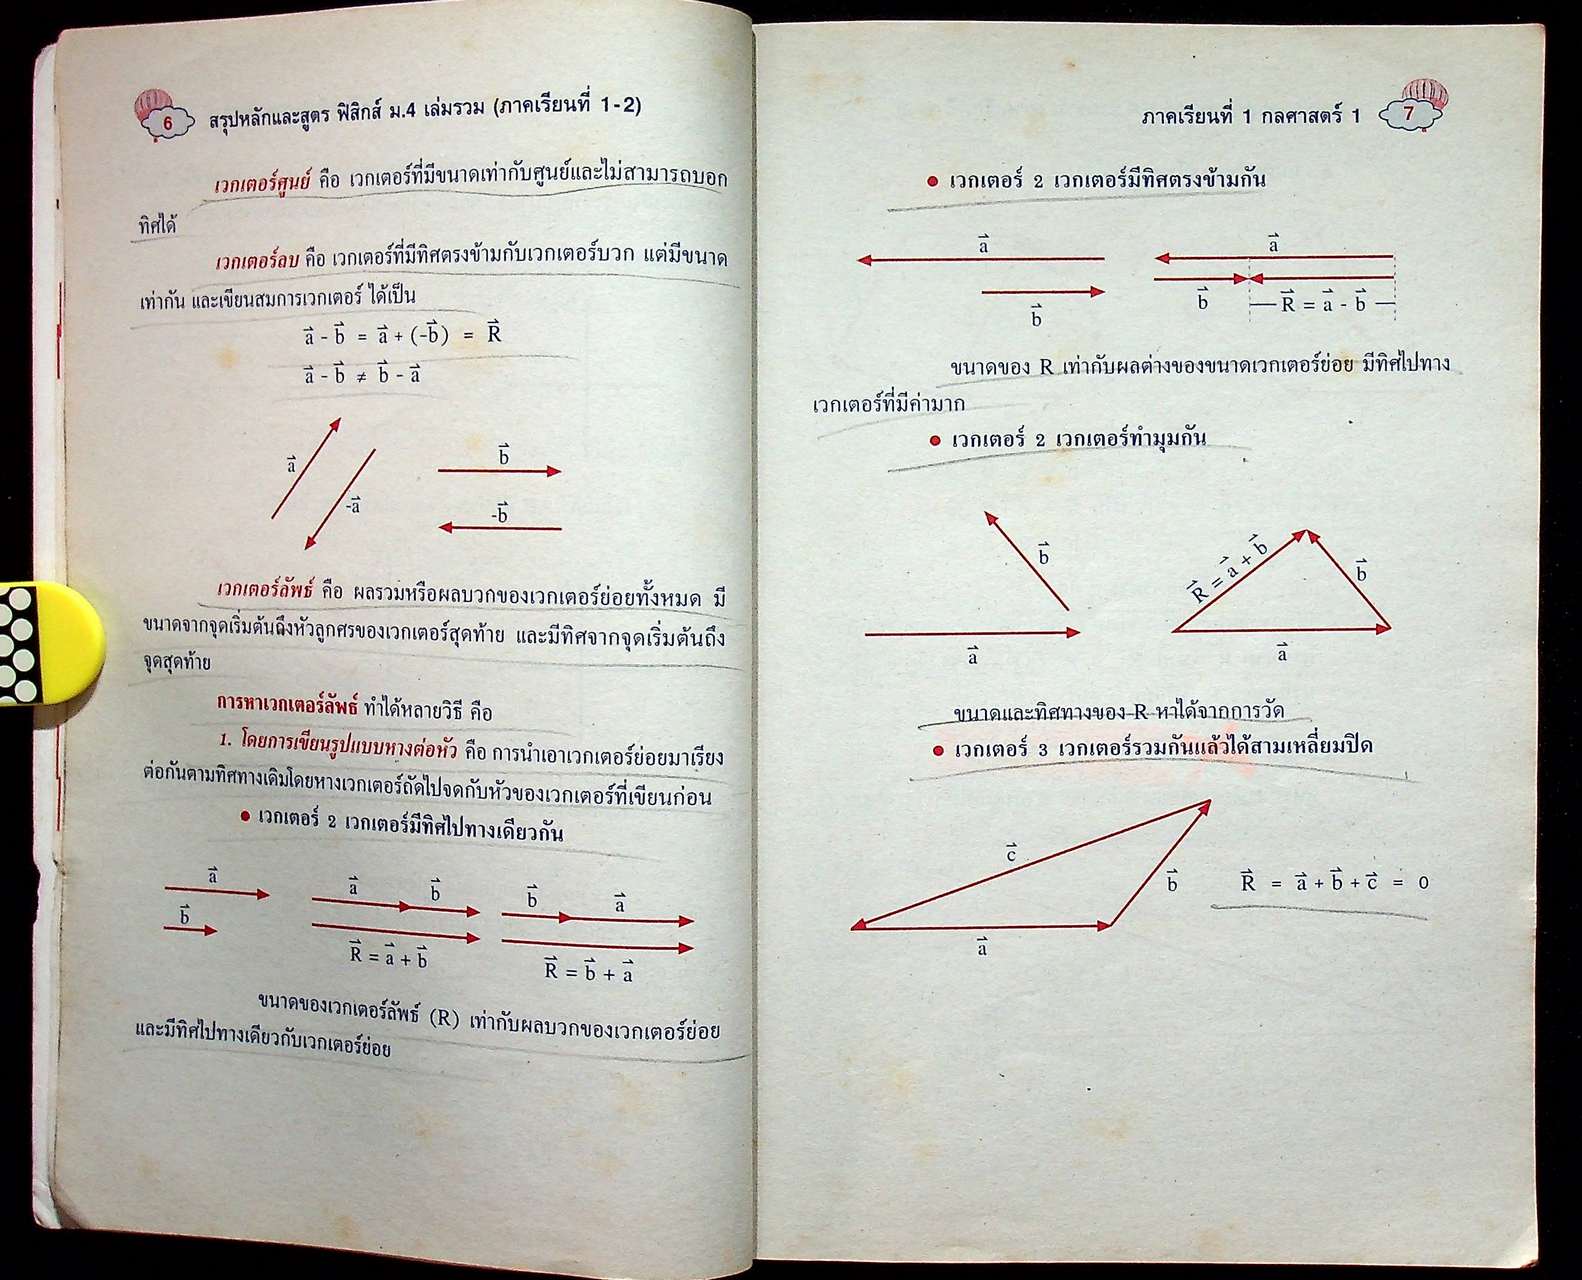 6 สรุปหลักและสูตร ฟิสิกส์ ม.4 เล่มรวม (ภาคเรียนที่ 1-2)
เวกเตอร์ศูนย์ คือ เวกเตอร์ที่มีขนาดเท่ากับศูนย์และไม่สามารถบอก
ทิศได้
เวกเตอร์ลบ คือ เวกเตอร์ที่มีทิศตรงข้ามกับเวกเตอร์บวก แต่มีขนาด
เท่ากัน และเขียนสมการเวกเตอร์ ได้เป็น
a⃗ - b⃗ = a⃗ + (-b⃗) = R⃗
a⃗ - b⃗ ≠ b⃗ - a⃗
a⃗
-a⃗
b⃗
-b⃗
เวกเตอร์ลัพธ์ คือ ผลรวมหรือผลบวกของเวกเตอร์ย่อยทั้งหมด มี
ขนาดจากจุดเริ่มต้นถึงหัวลูกศรของเวกเตอร์สุดท้าย และมีทิศจากจุดเริ่มต้นถึง
จุดสุดท้าย
การหาเวกเตอร์ลัพธ์ ทำได้หลายวิธี คือ
1. โดยการเขียนรูปแบบหางต่อหัว คือ การนำเอาเวกเตอร์ย่อยมาเรียง
ต่อกันตามทิศทางเดิมโดยหางเวกเตอร์ถัดไปจดกับหัวของเวกเตอร์ที่เขียนก่อน
• เวกเตอร์ 2 เวกเตอร์มีทิศไปทางเดียวกัน
a⃗ a⃗ b⃗ b⃗ a⃗
b⃗
R⃗ = a⃗ + b⃗ R⃗ = b⃗ + a⃗
ขนาดของเวกเตอร์ลัพธ์ (R) เท่ากับผลบวกของเวกเตอร์ย่อย
และมีทิศไปทางเดียวกับเวกเตอร์ย่อย
ภาคเรียนที่ 1 กลศาสตร์ 1 7
• เวกเตอร์ 2 เวกเตอร์มีทิศตรงข้ามกัน
a⃗ a⃗
b⃗ b⃗ R⃗ = a⃗ - b⃗
ขนาดของ R เท่ากับผลต่างของขนาดเวกเตอร์ย่อย มีทิศไปทาง
เวกเตอร์ที่มีค่ามาก
• เวกเตอร์ 2 เวกเตอร์ทำมุมกัน
b⃗ R⃗ = a⃗ + b⃗ b⃗
a⃗ a⃗
ขนาดและทิศทางของ R หาได้จากการวัด
• เวกเตอร์ 3 เวกเตอร์รวมกันแล้วได้สามเหลี่ยมปิด
c⃗
b⃗ R⃗ = a⃗ + b⃗ + c⃗ = 0
a⃗